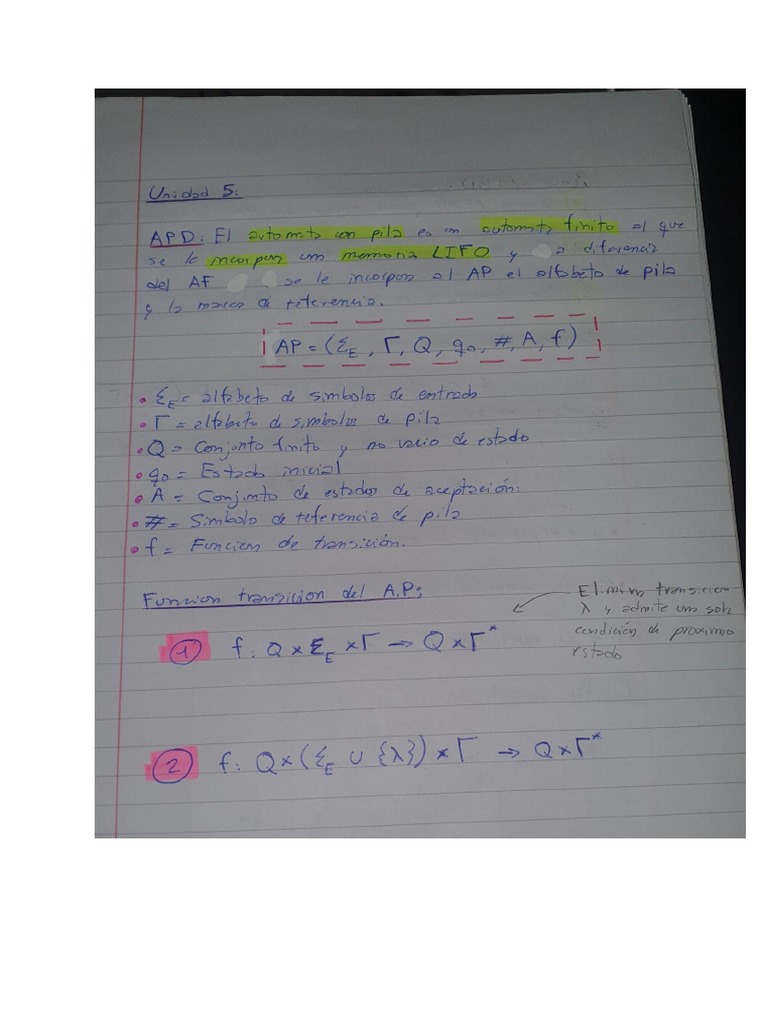 Unidad 5:
APD: El automata con pila es un automata finito al que
se le incorpora una memoria LIFO y a diferencia
del AF se le incorpora al AP el alfabeto de pila
y la marca de referencia.
AP = (Σ_E, Γ, Q, q0, #, A, f)
• Σ_E = alfabeto de simbolos de entrada
• Γ = alfabeto de simbolos de pila
• Q = Conjunto finito y no vacio de estado
• q0 = Estado inicial
• A = Conjunto de estados de aceptación.
• # = Simbolo de referencia de pila
• f = Funcion de transición.
Funcion transicion del A.P:
Elimina transicion
λ y admite una sola
condición de proximo
estado
1 f: Q × Σ_E × Γ → Q × Γ*
2 f: Q × (Σ_E ∪ {λ}) × Γ → Q × Γ*